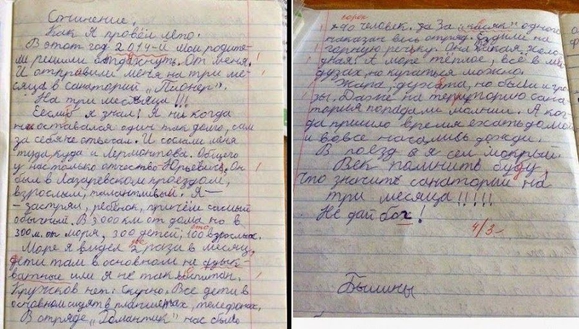 Сочинение.
Как я провёл лето.
В этот год 2014-й мои родите-
ли решили отдахнуть. От меня.
И отправили меня на три ме-
сяца в санаторий „Пионер".
На три месяца!!!
Еслиб я знал! Я ни когда
не оставался один так долго, сам
за себя не отвечал. И сослали меня
туда, куда и Лермонтова. Общего
у нас только отчество Юрьевич. Он
был в Лазаревском проездом,
взрослый, талантливый. А я
застрял, ребёнок, причём самый
обычный. В 3000 км от дома но в
300м. от моря, 300 детей, 100 взрослых.
Море я видел 2 раза в месяц,
дети там в основном не адыкватные
или я не так воспитан.
Кружков нет. Скучно. Все дети в
основном сидят в планшетах, телефонах,
В отряде „Романтик" нас было
40 человек. За
одного
наказан весь отряд. Ездили на
горную речку. Она
А море тёплое, всё в ме-
дузах, но купаться можно.
Жара, духота, но были и гро-
зы. Даже на территорию сана-
тория попадали молнии. А ког-
да пришло время ехать домой
и вовсе начались дожди.
В поезд я сел мокрый.
Век помнить буду,
что значить санаторий на
три месяца!!!!!
Не дай бох!
4/3
Былины